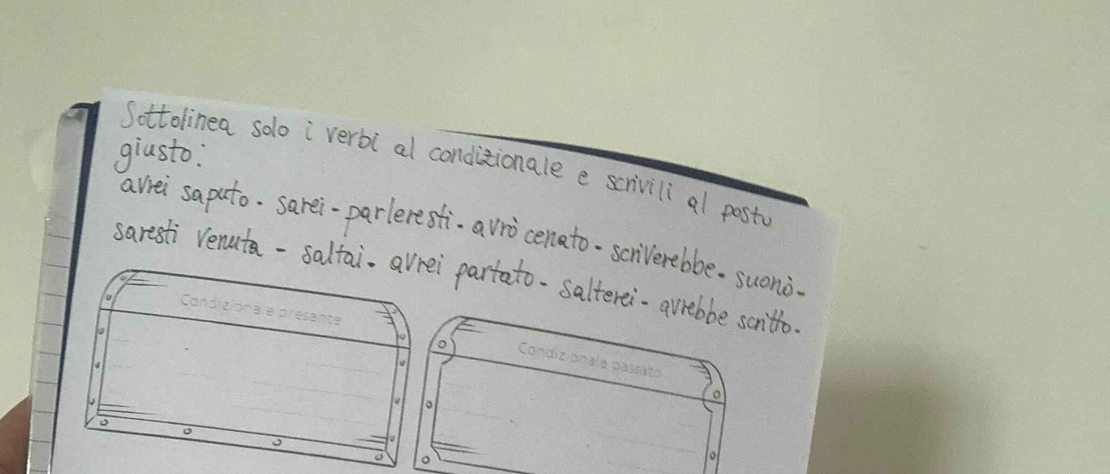 Sottolinea solo i verbi al condizionale e scrivili al posto
giusto:
avrei saputo - sarei - parleresti - avrò cenato - scriverebbe - suonò -
saresti venuta - saltai - avrei partato - salterei - avrebbe scritto.
Condizionale presente
Condizionale passato